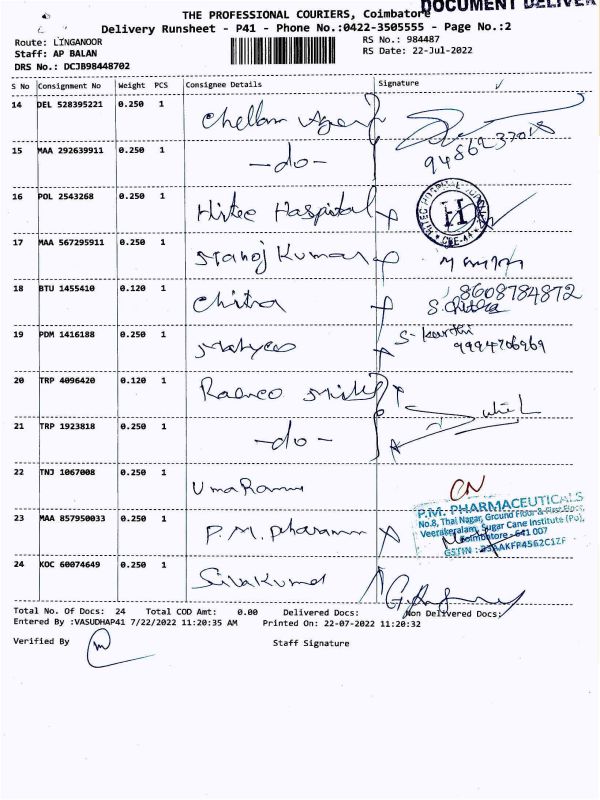 DOCUMENT DELIVER
THE PROFESSIONAL COURIERS, Coimbatore
Delivery Runsheet - P41 - Phone No.:0422-3505555 - Page No.:2
Route: LINGANOOR
Staff: AP BALAN
DRS No.: DCJB98448702
RS No.: 984487
RS Date: 22-Jul-2022
S No Consignment No Weight PCS Consignee Details Signature
14 DEL 528395221 0.250 1 Chellam
15 MAA 292639911 0.250 1 -do-
16 POL 2543268 0.250 1 Hitec Hospital
17 MAA 567295911 0.250 1 Manoj Kumar
18 BTU 1455410 0.120 1 Chitra 8608784872
S. Chitra
19 PDM 1416188 0.250 1 9994706969
20 TRP 4096420 0.120 1
21 TRP 1923818 0.250 1 -do-
22 TNJ 1067008 0.250 1 Uma CN
23 MAA 857950033 0.250 1 P.M. Pharama
P.M. PHARMACEUTICALS
No.8, Thai Nagar, Ground Floor & First Floor,
Veerakeralam, Sugar Cane Institute (Po),
Coimbatore - 641 007
GSTIN :
24 KOC 60074649 0.250 1 Sivakumar
Total No. Of Docs: 24 Total COD Amt: 0.00 Delivered Docs: Non Delivered Docs:
Entered By :VASUDHAP41 7/22/2022 11:20:35 AM Printed On: 22-07-2022 11:20:32
Verified By Staff Signature